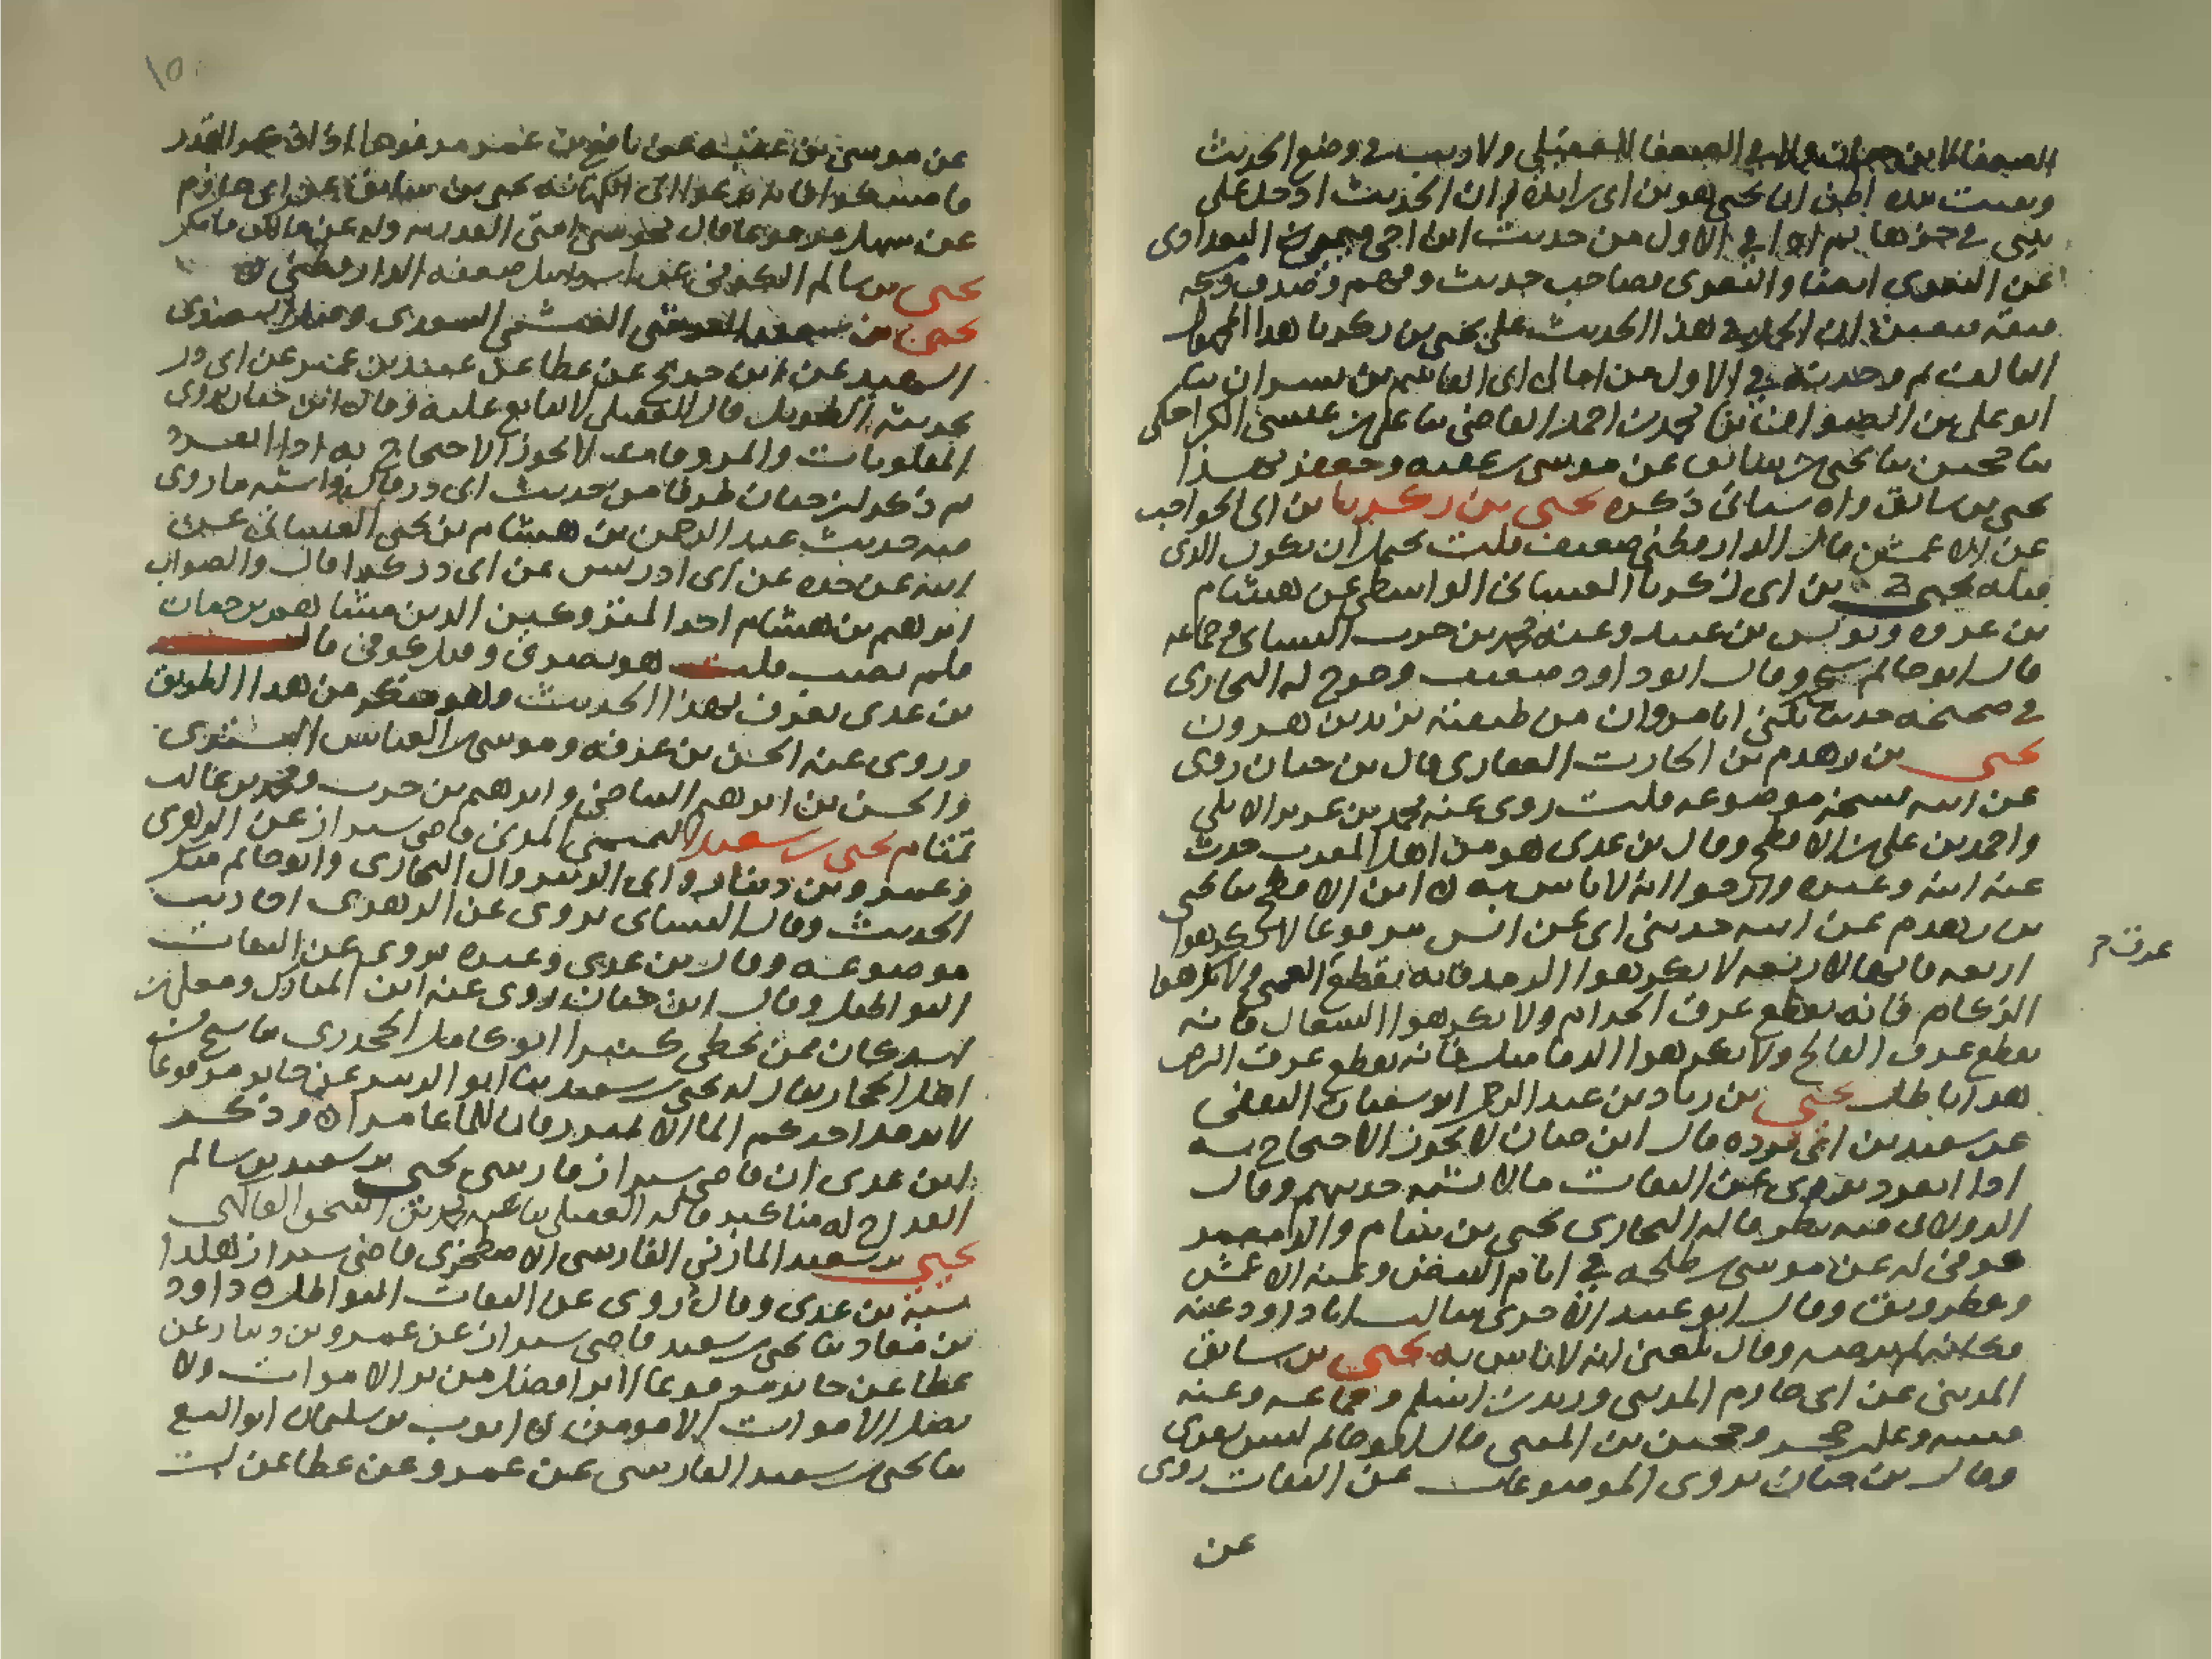 الضعفاء لابن حبان ولا في الضعفاء للعقيلي ولا ريب في وضع الحديث
اظن ان يحيى هو بن ابي زائدة وان الحديث ادخل على
في الاول من حديث ابن اخي ميمي البغدادي
عن البغوي ايضا والبغوي صاحب حديث وفهم وصدق وشيخه
هذا الحديث على يحيى بن زكريا هذا المجهول
التالف ثم وجدته في الاول من امالي ابي القاسم بن بشران
ابو علي بن الصواف ثنا محمد بن احمد القاضي ثنا علي بن عيسى الكراجكي
ثنا يحيى بن سابق عن موسى بن عقبة وجعفر بهذا
يحيى بن سابق واه سياتي ذكره يحيى بن زكريا بن ابي الحواجب
عن الاعمش قال الدارقطني ضعيف قلت يحتمل ان يكون الذي
قبله يحيى بن ابي زكريا الغساني الواسطي عن هشام
بن عروة ويونس بن عبيد وعنه محمد بن حرب النسائي في جماعة
قال ابو حاتم شيخ وقال ابو داود ضعيف وخرج له البخاري
في صحيحه حديثا يكنى ابا مروان من طبقة يزيد بن هرون
يحيى بن زهدم بن الحارث الغفاري قال بن حبان روى
عن ابيه نسخة موضوعة قلت روى عنه محمد بن عزيز الايلي
واحمد بن علي بن الافطح وقال بن عدي هو من اهل المغرب حدث
عنه ابنه وغيره وارجو انه لا باس به ابن الافطح ثنا يحيى
بن زهدم عن ابيه حدثني ابي عن انس مرفوعا لا تكرهوا
اربعة فانها لاربعة لا تكرهوا الرمد فانه يقطع العمى ولا تكرهوا
الزكام فانه يقطع عرق الجذام ولا تكرهوا السعال فانه
يقطع عرق الفالج ولا تكرهوا الدماميل فانه يقطع عرق البرص
هذا باطل يحيى بن زياد بن عبد الرحمن ابو سفيان الثقفي
عن سعيد بن ابي بردة قال ابن حبان لا يجوز الاحتجاج به
اذا انفرد يروي عن الثقات ما لا يشبه حديثهم وقال
الدولابي فيه نظر قاله البخاري يحيى بن سام والد معمر
كوفي له عن موسى بن طلحة في ايام البيض وعنه الاعمش
وفطر وبن وقال ابو عبيد الاجري سالت ابا داود عنه
فكانه لم يرضه وقال بلغني انه لا باس به يحيى بن سابق
المديني عن ابي حازم المديني وزيد بن اسلم وجماعة وعنه
قتيبة وعلي بن حجر ومحسن بن المعنى قال ابو حاتم ليس بقوي
وقال بن حبان يروي الموضوعات عن الثقات روى
عن
عرق م
١٥
عن موسى بن عقبة عن نافع بن عمر مرفوعا اذا ذكر القدر
فامسكوا فانه يدعوا الى الكهانة يحيى بن سابق عن ابي حازم
عن سهل مرفوعا قال مجوس امتي القدرية وله عن مالك مناكير
يحيى بن سالم الكوفي عن اسرائيل ضعفه الدارقطني
يحيى بن سعيد القرشي العبشمي السعدي وقيل السعيدي
الشهيد عن ابن جريج عن عطا عن عبيد بن عمير عن ابي ذر
بحديثه الطويل قال العقيلي لا يتابع عليه وقال ابن حبان يروي
المقلوبات والملزوقات لا يجوز الاحتجاج به اذا انفرد
ثم ذكر ابن حبان طرفا من حديث ابي ذر قال واشبه ما روى
فيه حديث عبد الرحمن بن هشام بن يحيى الغساني عن
ابيه عن جده عن ابي ادريس عن ابي ذر كذا قال والصواب
ابرهيم بن هشام احد المتروكين الذين مشاهم بن حبان
فلم يصب قلت هو بصري وقيل كوفي قال
بن عدي يعرف بهذا الحديث وهو منكر من هذا الطريق
وروى عنه الحسن بن عرفة وموسى بن العباس التستري
والحسن بن ابرهيم البياضي وابرهيم بن حرب ومحمد بن غالب
تمتام يحيى بن سعيد التميمي المدني قاضي شيراز عن الزهري
وعمرو بن دينار وابي الزبير قال البخاري وابو حاتم منكر
الحديث وقال النسائي يروي عن الزهري احاديث
موضوعة وقال بن عدي وغيره يروي عن الثقات
البواطيل وقال ابن حبان روى عنه ابن المبارك ومعلى بن
اسد كان ممن يخطئ كثيرا ابو كامل الجحدري ثنا شيخ من
اهل الحجاز يقال له يحيى بن سعيد ثنا ابو الزبير عن جابر مرفوعا
لا يدخل احدكم الماء الا بمئزر فان للماء عامرا وذكر
ابن عدي ان قاضي شيراز فارسي يحيى بن سعيد بن سالم
القداح له مناكير قاله العقيلي ثنا عنه محمد بن اسحق الفاكهي
يحيى بن سعيد المازني الفارسي الاصطخري قاضي شيراز هكذا
نسبه بن عدي وقال روى عن الثقات البواطيل داود
بن معاذ ثنا يحيى بن سعيد قاضي شيراز عن عمرو بن دينار عن
عطا عن جابر مرفوعا
الاموات الا مومن ايوب بن سليمان ابو اليسع
ثنا يحيى بن سعيد الفارسي عن عمرو عن عطا عن